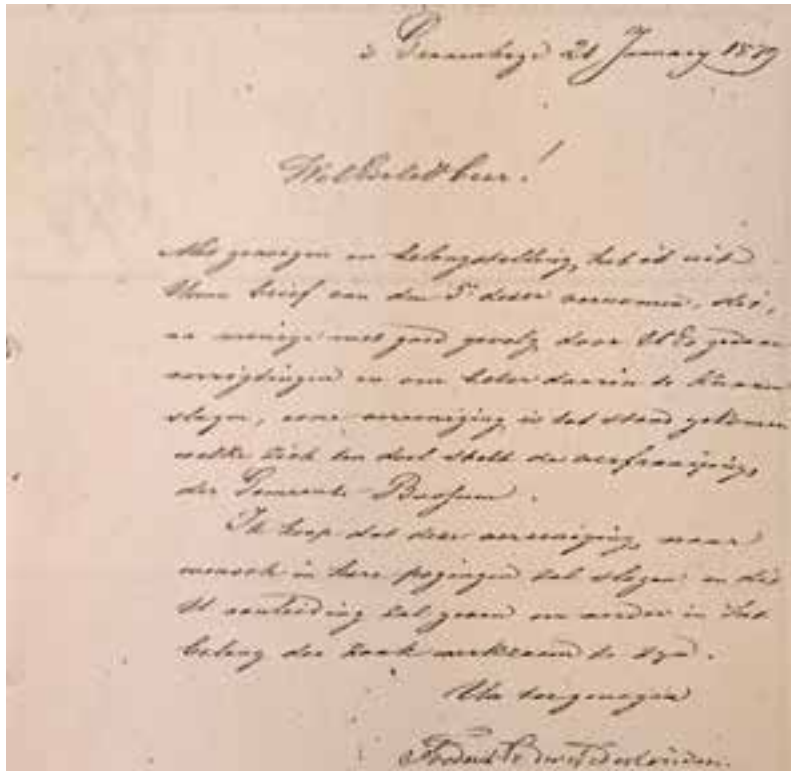 's Gravenhage 21 January 1879
WelEdele Heer!
Met genoegen en belangstelling, heb ik uit
Uwen brief van den 5n dezer vernomen, dat,
na menige met goed gevolg door UEd gedane
verrigtingen en om beter daarin te kunnen
slagen, eene vereeniging is tot stand gekomen
welke zich ten doel stelt de verfraaijing
der Gemeente Bussum.
Ik hoop dat deze vereeniging naar
wensch in hare pogingen zal slagen en dit
U aanleiding zal geven om verder in het
belang der zaak werkzaam te zijn.
Uw toegenegen
Frederik der Nederlanden.